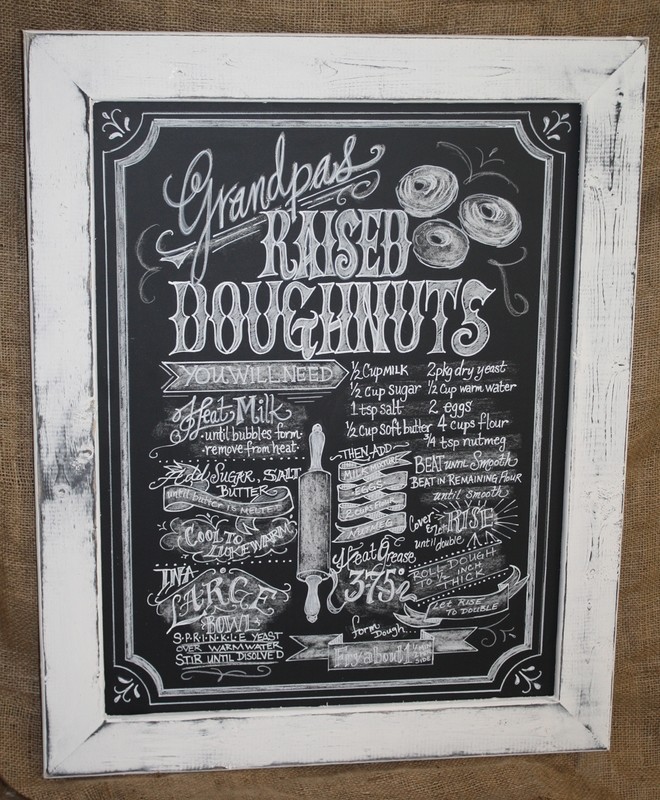 Grandpas
RAISED
DOUGHNUTS
YOU WILL NEED
½ Cup MILK
½ Cup sugar
1 tsp salt
½ Cup soft butter
2 pkg dry yeast
½ Cup warm water
2 eggs
4 cups flour
¾ tsp nutmeg
Heat Milk
until bubbles form
remove from heat
Add SUGAR, SALT
BUTTER
until butter is melted
COOL TO
LUKEWARM
IN A
LARGE
BOWL
S·P·R·I·N·K·L·E YEAST
OVER WARM WATER
STIR UNTIL DISOLVED
THEN, ADD
MILK MIXTURE
EGGS
2 CUPS FLOUR
NUTMEG
BEAT until Smooth
BEAT IN REMAINING FLOUR
until smooth
Cover
& let RISE
until double
ROLL DOUGH
TO ½ INCH
THICK
Let RISE
TO DOUBLE
Heat Grease
375°
form
Dough...
Fry about 1